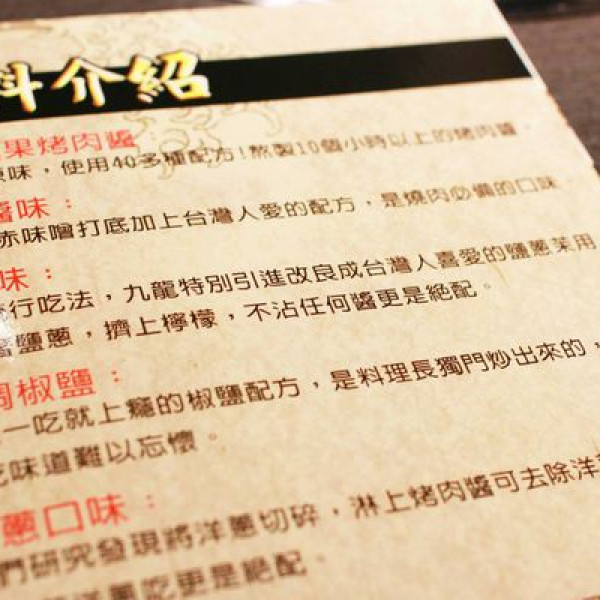 料介紹
果烤肉醬
味，使用40多種配方!熬製10個小時以上的烤肉醬。
醬味：
赤味噌打底加上台灣人愛的配方，是燒肉必備的口味
味：
行吃法，九龍特別引進改良成台灣人喜愛的鹽蔥菜用
鹽蔥，擠上檸檬，不沾任何醬更是絕配。
椒鹽：
一吃就上癮的椒鹽配方，是料理長獨門炒出來的，
味道難以忘懷。
蔥口味：
們研究發現將洋蔥切碎，淋上烤肉醬可去除洋
洋蔥吃更是絕配。